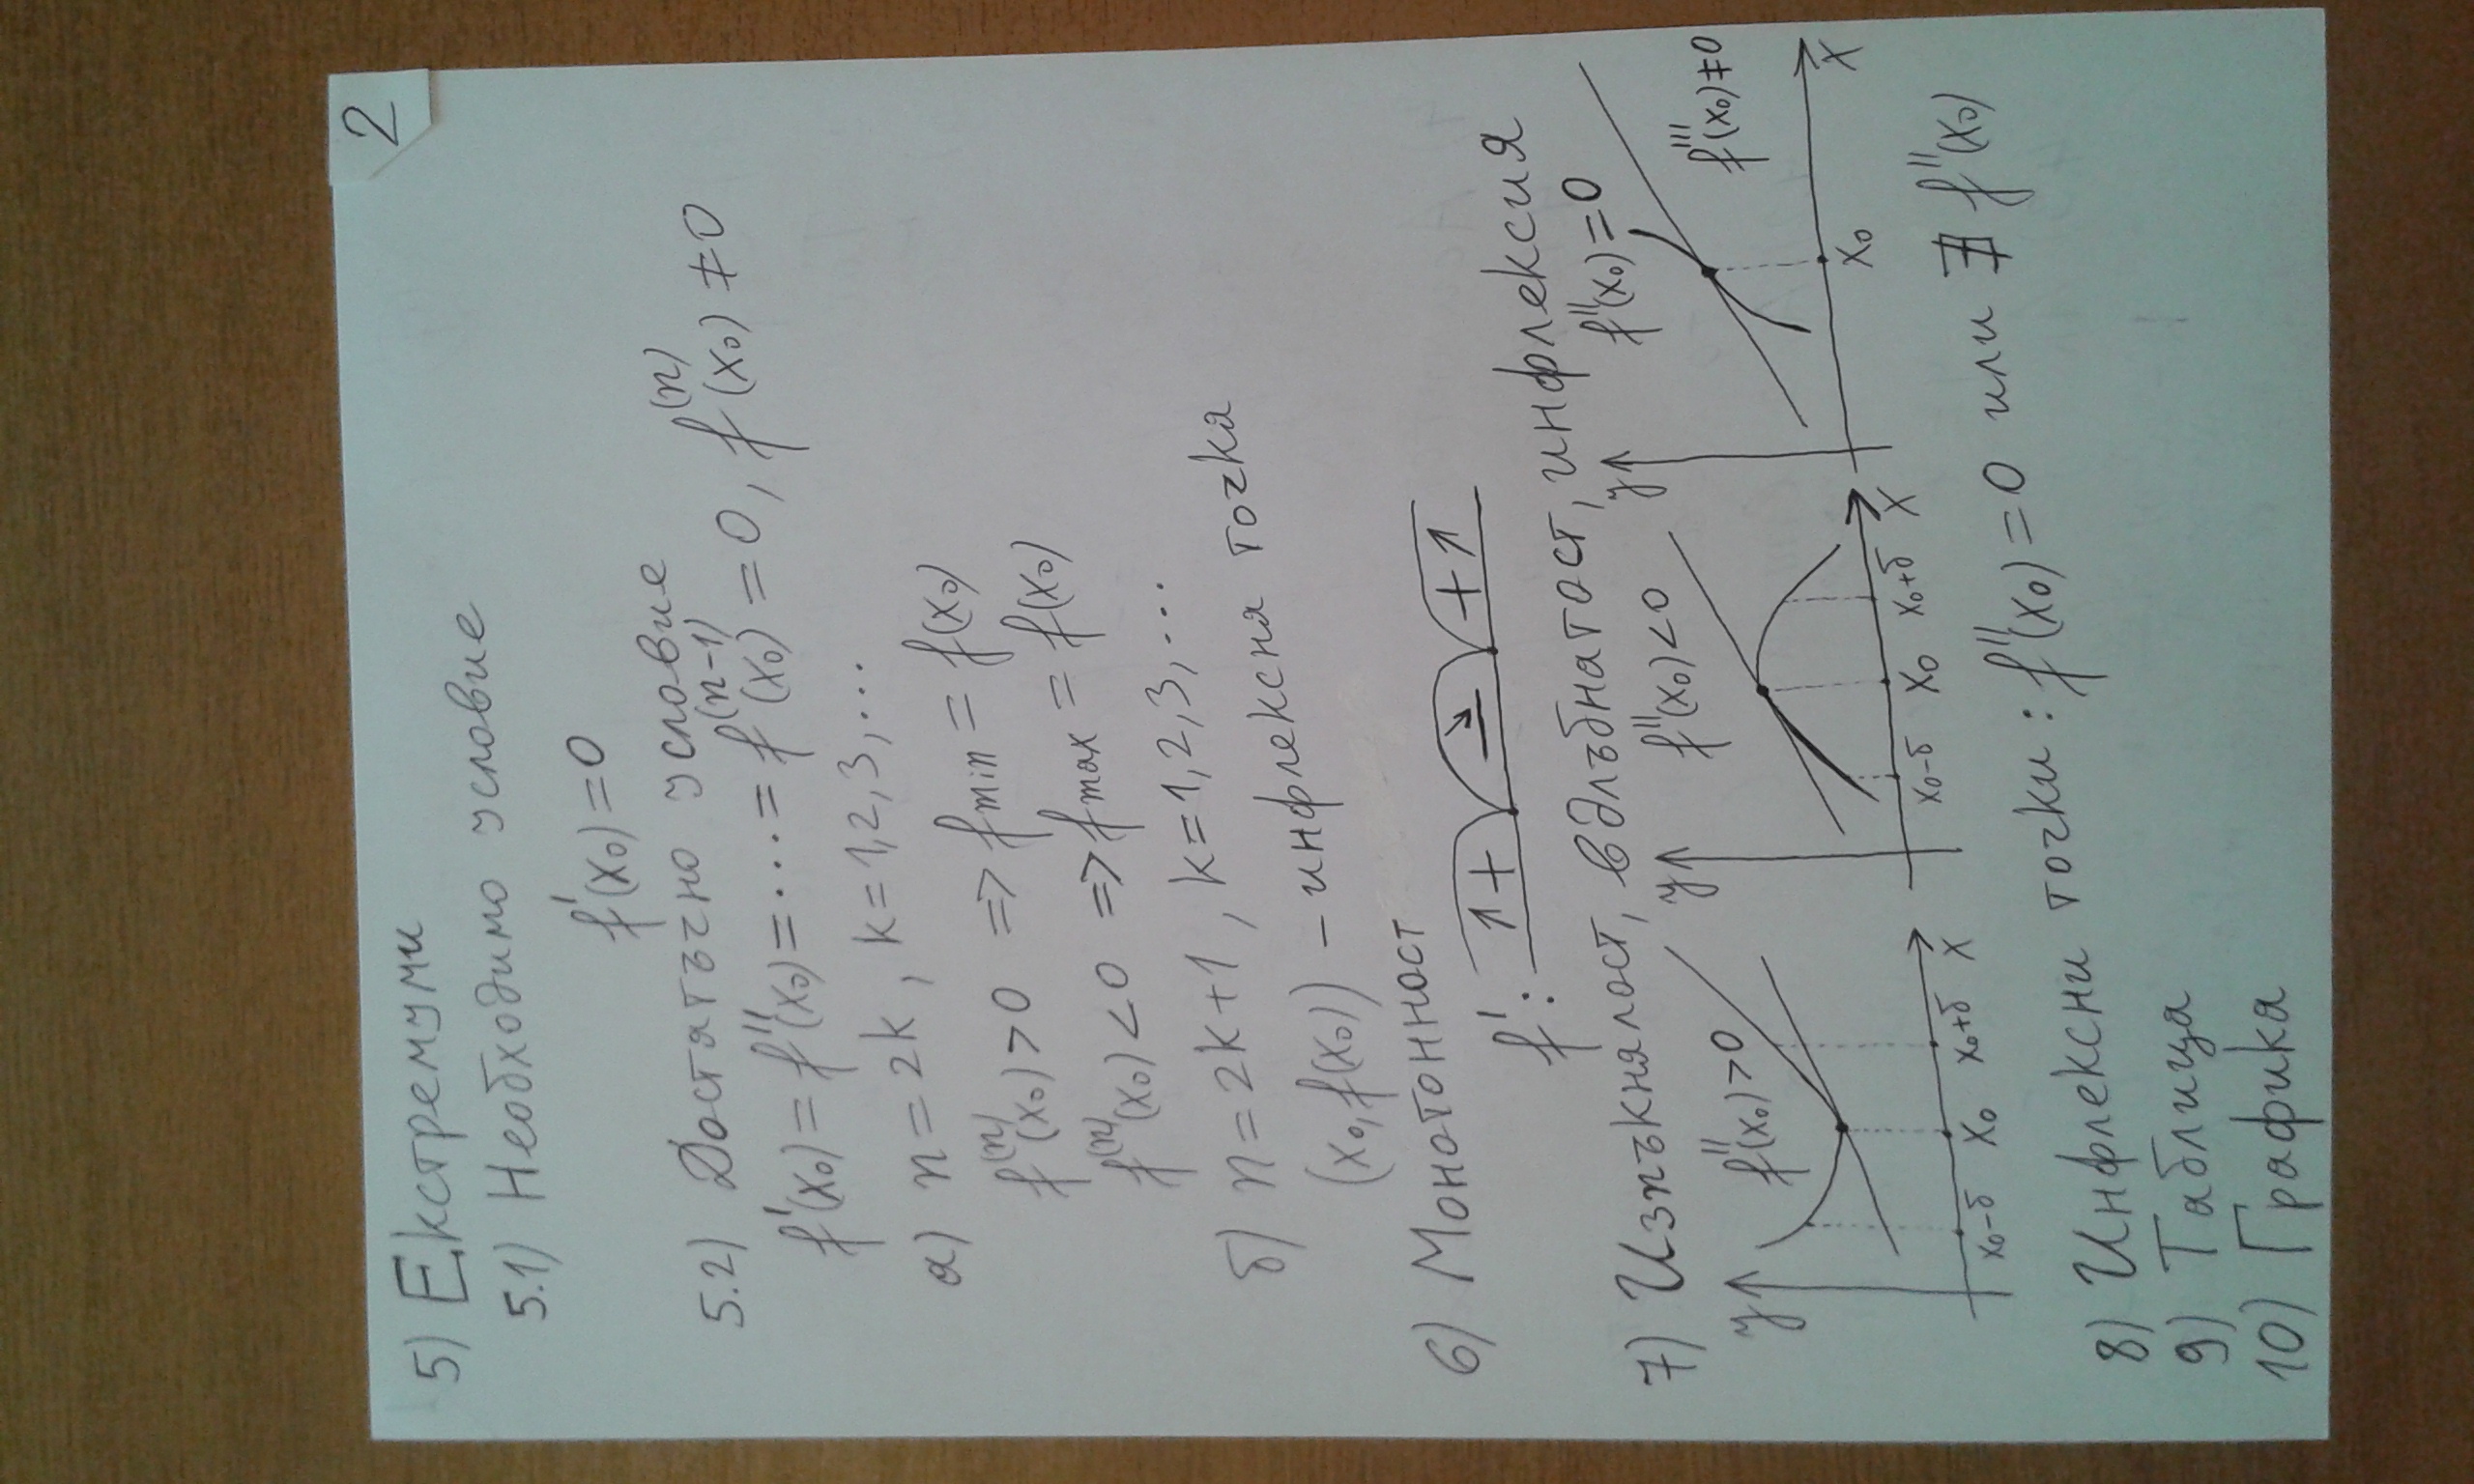 2
5) Екстремуми
5.1) Необходимо условие
f'(x₀) = 0
5.2) Достатъчно условие
f'(x₀) = f''(x₀) = ... = f⁽ⁿ⁻¹⁾(x₀) = 0, f⁽ⁿ⁾(x₀) ≠ 0
а) n = 2k, k = 1, 2, 3, ...
f⁽ⁿ⁾(x₀) > 0 => fmin = f(x₀)
f⁽ⁿ⁾(x₀) < 0 => fmax = f(x₀)
б) n = 2k+1, k = 1, 2, 3, ...
(x₀, f(x₀)) – инфлексна точка
6) Монотонност
f': ↑ + ↘ – + ↑
7) Изпъкналост, вдлъбнатост, инфлексия
y f''(x₀) > 0
x₀-δ x₀ x₀+δ x
y f''(x₀) < 0
x₀-δ x₀ x₀+δ x
y f''(x₀) = 0
f'''(x₀) ≠ 0
x₀ x
8) Инфлексни точки: f''(x₀) = 0 или ∄ f''(x₀)
9) Таблица
10) Графика